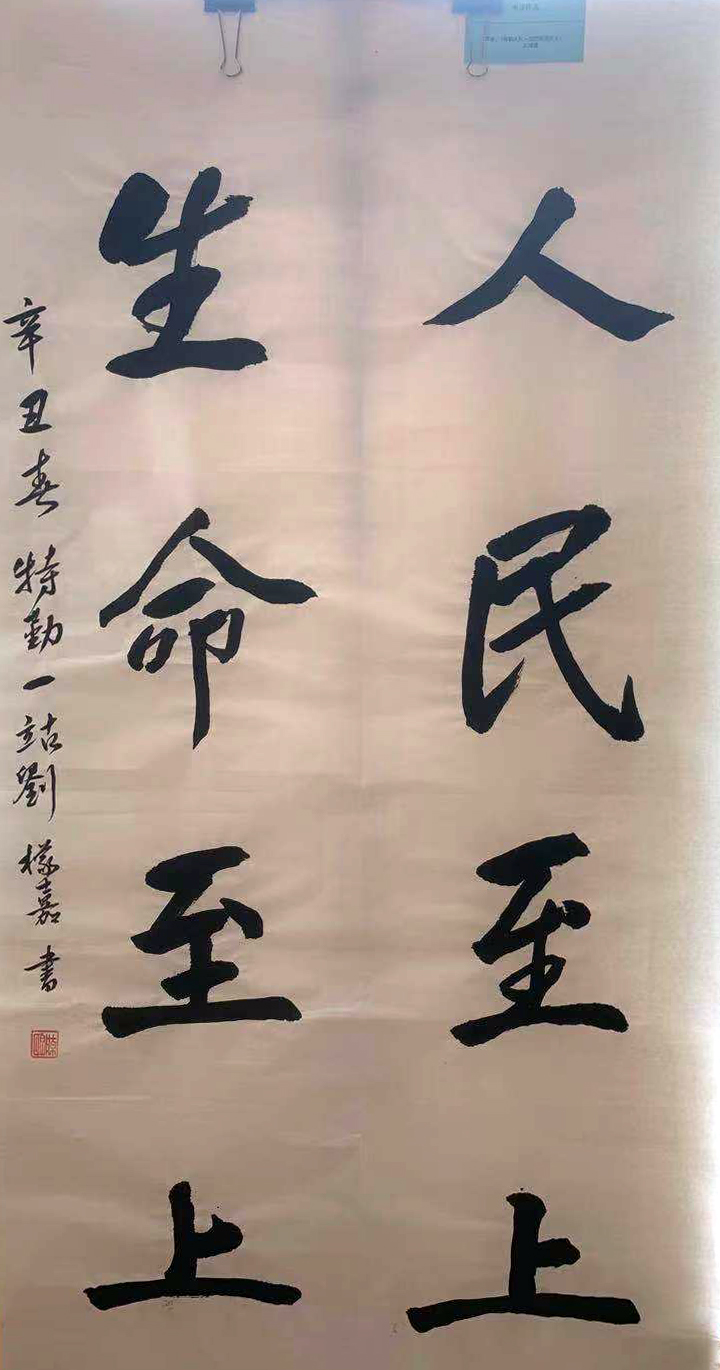 人民至上
生命至上
辛丑春 特勤一站劉檬嘉書